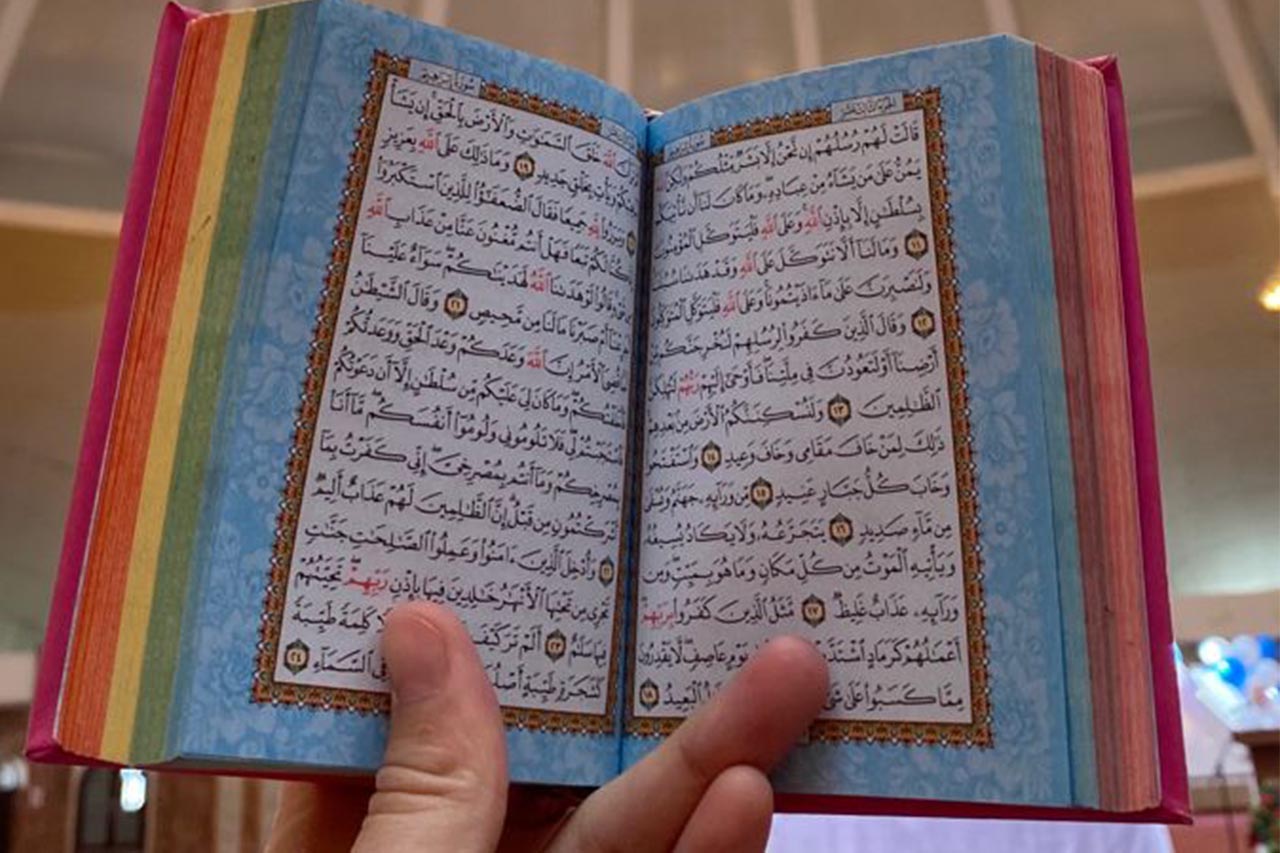 الجزء الثالث عشر
سورة إبراهيم
قَالَتْ لَهُمْ رُسُلُهُمْ إِن نَّحْنُ إِلَّا بَشَرٌ مِّثْلُكُمْ وَلَٰكِنَّ
يَمُنُّ عَلَىٰ مَن يَشَآءُ مِنْ عِبَادِهِۦ وَمَا كَانَ لَنَآ أَن نَّأْتِيَكُم
بِسُلْطَٰنٍ إِلَّا بِإِذْنِ ٱللَّهِ وَعَلَى ٱللَّهِ فَلْيَتَوَكَّلِ ٱلْمُؤْمِنُونَ
١١ وَمَا لَنَآ أَلَّا نَتَوَكَّلَ عَلَى ٱللَّهِ وَقَدْ هَدَىٰنَا سُبُلَنَا
وَلَنَصْبِرَنَّ عَلَىٰ مَآ ءَاذَيْتُمُونَا وَعَلَى ٱللَّهِ فَلْيَتَوَكَّلِ ٱلْمُتَوَكِّلُونَ
١٢ وَقَالَ ٱلَّذِينَ كَفَرُوا۟ لِرُسُلِهِمْ لَنُخْرِجَنَّكُم مِّنْ
أَرْضِنَآ أَوْ لَتَعُودُنَّ فِى مِلَّتِنَا فَأَوْحَىٰٓ إِلَيْهِمْ رَبُّهُمْ لَنُهْلِكَنَّ
ٱلظَّٰلِمِينَ ١٣ وَلَنُسْكِنَنَّكُمُ ٱلْأَرْضَ مِنۢ بَعْدِهِمْ
ذَٰلِكَ لِمَنْ خَافَ مَقَامِى وَخَافَ وَعِيدِ ١٤ وَٱسْتَفْتَحُوا۟
وَخَابَ كُلُّ جَبَّارٍ عَنِيدٍ ١٥ مِّن وَرَآئِهِۦ جَهَنَّمُ وَيُسْقَىٰ
مِن مَّآءٍ صَدِيدٍ ١٦ يَتَجَرَّعُهُۥ وَلَا يَكَادُ يُسِيغُهُۥ
وَيَأْتِيهِ ٱلْمَوْتُ مِن كُلِّ مَكَانٍ وَمَا هُوَ بِمَيِّتٍ وَمِن
وَرَآئِهِۦ عَذَابٌ غَلِيظٌ ١٧ مَّثَلُ ٱلَّذِينَ كَفَرُوا۟ بِرَبِّهِمْ
أَعْمَٰلُهُمْ كَرَمَادٍ ٱشْتَدَّتْ يَوْمٍ عَاصِفٍ لَّا يَقْدِرُونَ
مِمَّا كَسَبُوا۟ عَلَىٰ ٱلْبَعِيدُ ١٨
سورة إبراهيم
ٱللَّهَ خَلَقَ ٱلسَّمَٰوَٰتِ وَٱلْأَرْضَ بِٱلْحَقِّ إِن يَشَأْ
وَيَأْتِ بِخَلْقٍ جَدِيدٍ ١٩ وَمَا ذَٰلِكَ عَلَى ٱللَّهِ بِعَزِيزٍ
وَبَرَزُوا۟ لِلَّهِ جَمِيعًا فَقَالَ ٱلضُّعَفَٰٓؤُا۟ لِلَّذِينَ ٱسْتَكْبَرُوٓا۟
كُنَّا لَكُمْ تَبَعًا فَهَلْ أَنتُم مُّغْنُونَ عَنَّا مِنْ عَذَابِ ٱللَّهِ
قَالُوا۟ لَوْ هَدَىٰنَا ٱللَّهُ لَهَدَيْنَٰكُمْ سَوَآءٌ عَلَيْنَآ
أَمْ صَبَرْنَا مَا لَنَا مِن مَّحِيصٍ ٢١ وَقَالَ ٱلشَّيْطَٰنُ
قُضِىَ ٱلْأَمْرُ إِنَّ ٱللَّهَ وَعَدَكُمْ وَعْدَ ٱلْحَقِّ وَوَعَدتُّكُمْ
فَأَخْلَفْتُكُمْ وَمَا كَانَ لِىَ عَلَيْكُم مِّن سُلْطَٰنٍ إِلَّآ أَن دَعَوْتُكُمْ
فَٱسْتَجَبْتُمْ لِى فَلَا تَلُومُونِى وَلُومُوٓا۟ أَنفُسَكُم مَّآ أَنَا۠
بِمُصْرِخِكُمْ وَمَآ أَنتُم بِمُصْرِخِىَّ إِنِّى كَفَرْتُ بِمَآ
أَشْرَكْتُمُونِ مِن قَبْلُ إِنَّ ٱلظَّٰلِمِينَ لَهُمْ عَذَابٌ أَلِيمٌ
٢٢ وَأُدْخِلَ ٱلَّذِينَ ءَامَنُوا۟ وَعَمِلُوا۟ ٱلصَّٰلِحَٰتِ جَنَّٰتٍ
تَجْرِى مِن تَحْتِهَا ٱلْأَنْهَٰرُ خَٰلِدِينَ فِيهَا بِإِذْنِ رَبِّهِمْ تَحِيَّتُهُمْ
فِيهَا سَلَٰمٌ ٢٣ أَلَمْ تَرَ كَيْفَ كَلِمَةً طَيِّبَةً
كَشَجَرَةٍ طَيِّبَةٍ أَصْلُهَا فِى ٱلسَّمَآءِ ٢٤